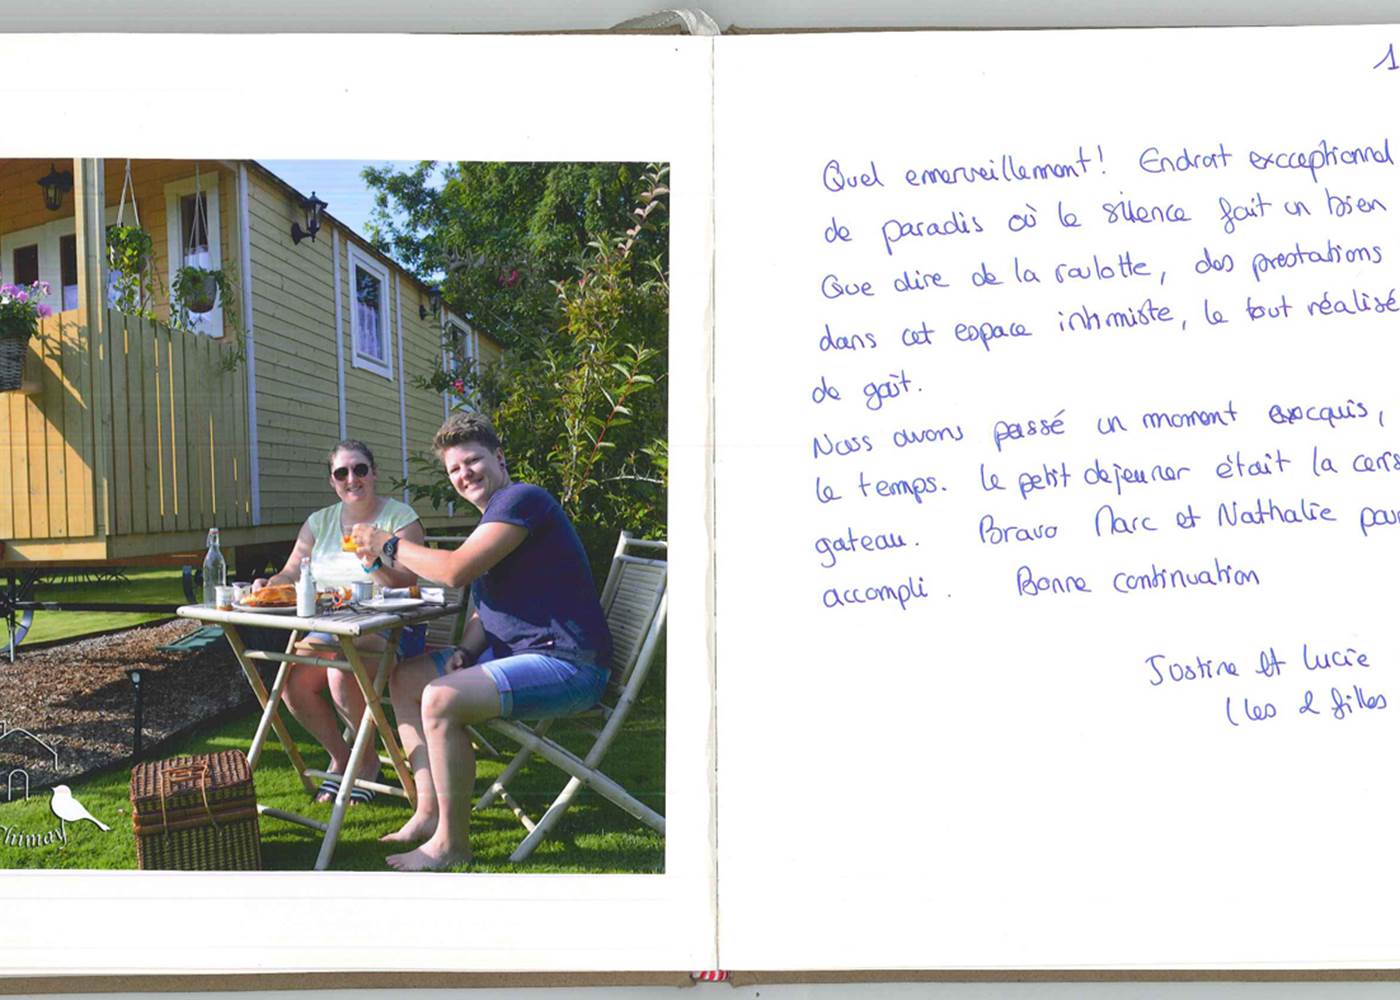 himay
1
Quel emerveillement! Endroit excceptionnel
de paradis où le silence fait un bien
Que dire de la roulotte, des prestations
dans cet espace intimiste, le tout réalisé
de goût.
Nous avons passé un moment excquis,
le temps. le petit dejeuner était la ceris
gateau. Bravo Marc et Nathalie pour
accompli. Bonne continuation
Justine et Lucie
(les 2 filles